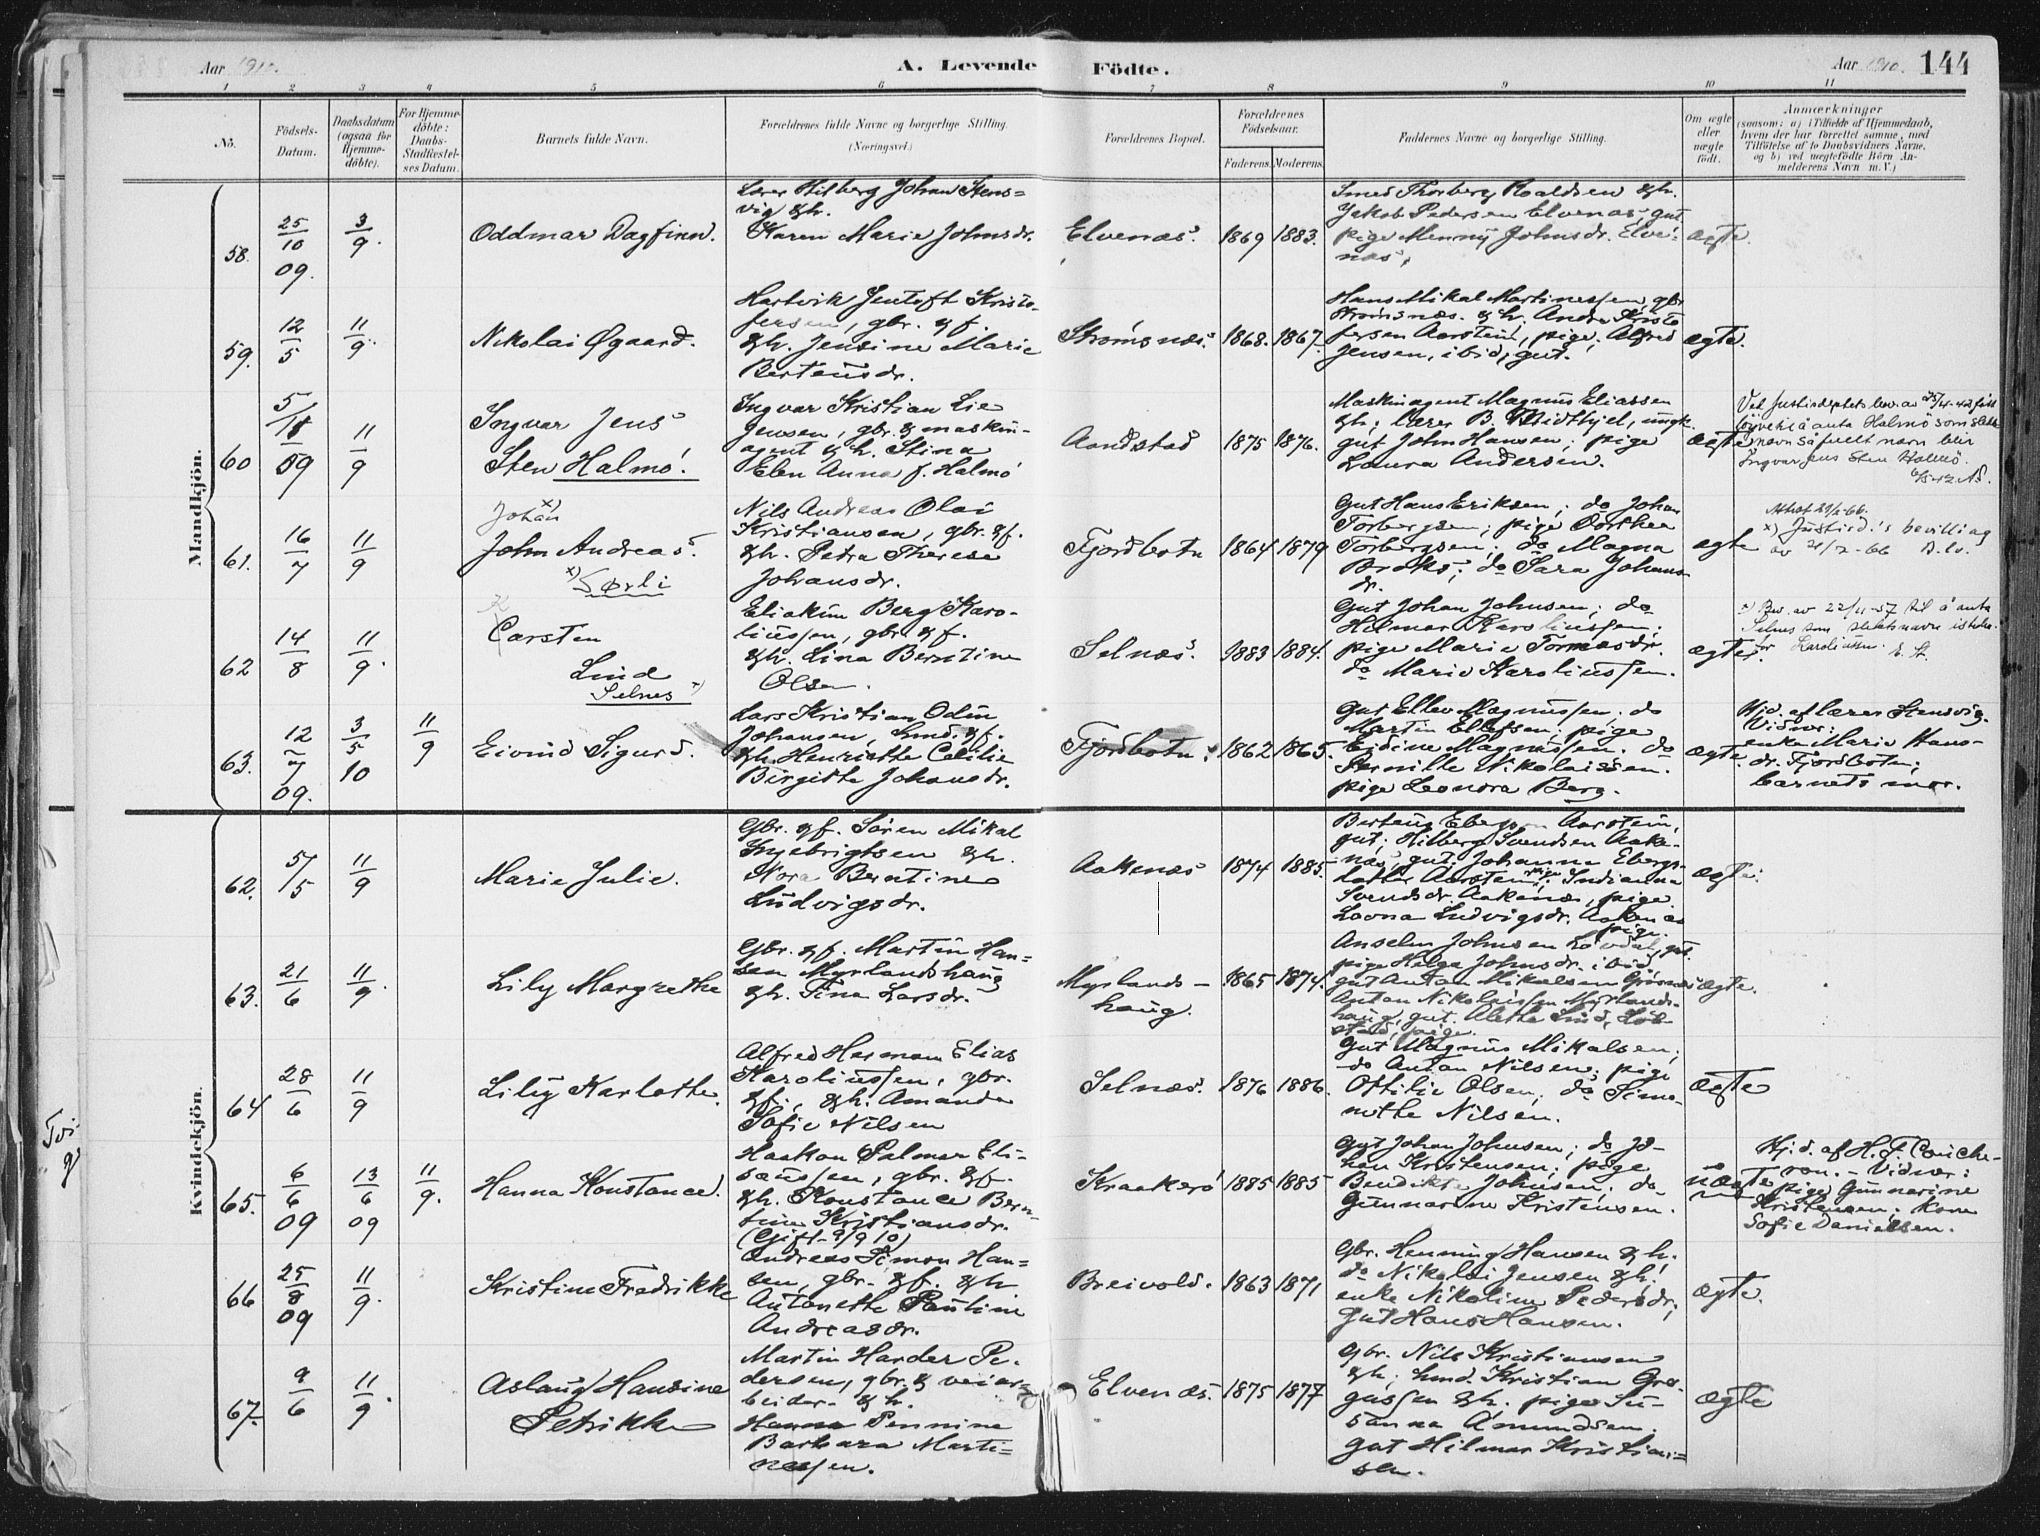 Aar 1910.
A. Levende Födte.
Aar 1910. 144
1 2 3 4 5 6 7 8 9 10 11
No.
Födsels-
Datum.
Daabsdatum
(ogsaa for
Hjemme-
döbte).
For Hjemme-
döbte:
Daabs-
Stadfæstel-
ses Datum.
Barnets fulde Navn.
Forældrenes fulde Navne og borgerlige Stilling.
(Næringsvei.)
Forældrenes Bopæl.
Forældrenes
Födselsaar.
Faderens. Moderens.
Faddernes Navne og borgerlige Stilling.
Om ægte
eller
uægte
født.
Anmærkninger
(saasom: a) i Tilfælde af Hjemmedaab,
hvem der har forrettet samme, med
Tilföielse af to Daabsvidners Navne,
og b) ved uægtefödte Börn An-
melderens Navn m. V.)
Mandkjön.
58.
25/10 09.
3/9.
Oddmar Dagfinn.
Lærer Hilberg Johan Stens=
vig & h.
Karen Marie Johnsdr.
Elvenæs.
1869 1883.
Smed Thorberg Roaldsen & h.
Jakob Pedersen Elvenæs, gut
pige Menny Johnsdr. Elve-
næs,
ægte.
59.
12/5
11/9.
Nikolai Øgaard.
Hartvik Jentoft Kristo-
fersen, gbr. & f.
& h. Jensine Marie
Berteusdr.
Strømsnæs.
1868. 1867.
Hans Mikal Martinessen, gbr
Strømsnæs. & h. Andr. Kristo
fersen Aarstein, pige; Alfred
Jensen, ibid, gut.
ægte.
60
5/11 09
11/9
Ingvar Jens
Sten Halmö.
Ingvar Kristian Lie
Jensen, gbr. & maskin-
agent & h. Stina
Elen Anna f. Halmö
Aandstad
1875 1876.
Maskinagent Magnus Eliassen
& h; lærer B. Midthjel, ungk.
gut John Hansen; pige
Laura Andersen.
ægte
Ved Justisdeptets bev. av 25/4-42 fått
löyve til å anta Halmö som slekts
navn så fullt navn blir
Ingvar Jens Sten Halmö.
61.
16/7
11/9
Johan x)
John Andreas.
x) Sørli
Nils Andreas Olai
Kristiansen, gbr. & f.
& h. Petra Therese
Johansdr.
Fjordbotn
1864 1879
Gut Hans Eriksen; do Johan
Torbergsen; pige Dorthea
Torbergsen; do Magna
Broks; do Sara Johans
dr.
ægte
Attest 29/2-66.
x) Justisd.'s bevilling
av 21/2-66
62
14/8
11/9.
K
Carsten
Lind
Selnes x)
Eliakim Berg Karo-
liussen, gbr. & f.
& h. Lina Berntine
Olsen.
Selnæs.
1883 1884.
Gut Johan Johnsen; do
Hilmar Karoliussen;
pige Marie Tomasdr.
do Marie Karoliussen.
ægte.
x) Bev. av 22/11-57 til å anta
Selnes som slektsnavn isteden-
for Karoliussen. E. St.
63.
12/7 09.
3/5 10
11/9
Eivind Sigurd.
Lars Kristian Odin
Johansen, Lmd. & f.
& h. Henriette Cecilie
Birgitte Johansdr.
Fjordbotn.
1862 1865.
Gut Ellev Magnussen; do
Martin Ellefsen; pige
Eidine Magnussen. do
Pernille Nikolaissen.
pige Leonora Berg.
ægte.
Hjd. af lærer Stensvig.
Vidner:
enke Marie Hans-
dr. Fjordbotn;
barnets mor.
Kvindekjön.
62.
5/5
11/9
Marie Julie.
Gbr. & f. Søren Mikal
Ingebrigtsen & h.
Nora Berntine
Ludvigsdr.
Aakenæs
1874 1885.
Berteus Ebergsen Aarstein,
gut; Hilberg Svendsen Aake-
næs, gut; Johanna Ebergs-
datter Aarstein, pige; Indianna
Svendsdr. Aakenæs, pige
Lovna Ludvigsdr. Aakenæs
pige.
ægte.
63.
21/6
11/9.
Lily Margrethe
Gbr. & f. Martin Han-
sen Myrlandshaug
& h. Tina Larsdr.
Myrlands-
haug.
1865 1874.
Anselm Johnsen Lövdal, gut
pige Helga Johnsdr. ibid
gut Anton Mikalsen
Anton Nikolaissen Myrlands-
haug, gut. Alethe Lind,
pige.
ægte.
64
28/6
11/9
Lily Karlotte.
Alfred Herman Elias
Karoliussen, gbr.
& f., & h. Amanda
Sofie Nilsen
Selnæs.
1876 1886.
Gut Magnus Mikalsen;
do Anton Nilsen; pige
Ottilie Olsen; do Sime-
nette Nilsen.
ægte
Tvi-
65.
6/6 09
13/6 09
11/9.
Hanna Konstance.
Haakon Palmar Eli-
saussen, gbr. & f.
& h. Konstance Bern-
tine Kristiansdr.
(Gift 9/9 10)
Kraakerö
1885 1885
Gut Johan Johnsen; do Jo-
han Kristensen; pige
Benedikte Johnsen. do
Gunnarine Kristensen.
uægte
Hjd. af H. F. Couche-
ron. - Vidner:
pige Gunnarine
Kristensen; Kone
Sofie Danielsen.
66
25/8 09
11/9.
Kristine Fredrikke
Andreas Simon Han-
sen, gbr. & f. & h.
Antonette Pauline
Andreasdr.
Breivold.
1863 1871
Gbr. Henning Hansen & h.
do Nikolai Jensen & h.
enke Nikoline Pedersdr,
Gut Hans Hansen.
ægte.
67.
9/6
11/9
Aslaug Hansine
Petrikke
Martin Harder Pe-
dersen, gbr. & veiar-
beider. & h.
Hanna Pernine
Barbara Marti-
nessen.
Elvenæs.
1875 1877
Gbr. Nils Kristiansen
& h; Lmd. Kristian Gre-
gussen & h. pige Su-
sanna Amundsen.
Gut Hilmar Kristian=
sen.
ægte